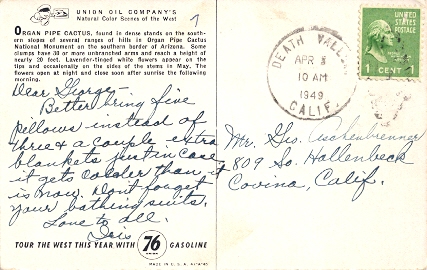 UNION OIL COMPANY'S
Natural Color Scenes of the West
7
ORGAN PIPE CACTUS, found in dense stands on the south-
ern slopes of several ranges of hills in Organ Pipe Cactus
National Monument on the southern border of Arizona. Some
clumps have 30 or more unbranched arms and reach a height of
nearly 20 feet. Lavender-tinged white flowers appear on the
tips and occasionally on the sides of the stems in May. The
flowers open at night and close soon after sunrise the following
morning.
Dear George -
Better bring five
pillows instead of
three & a couple extra
blankets just in case
it gets colder than it
is now. Dont forget
your bathing suits.
Love to all.
Isis
TOUR THE WEST THIS YEAR WITH 76 GASOLINE
MADE IN U.S.A.
DEATH VALLEY
APR
10 AM
1949
CALIF.
UNITED STATES
POSTAGE
1 CENT 1
Mr. Geo. Aschenbrenner
809 So. Hollenbeck
Covina, Calif.